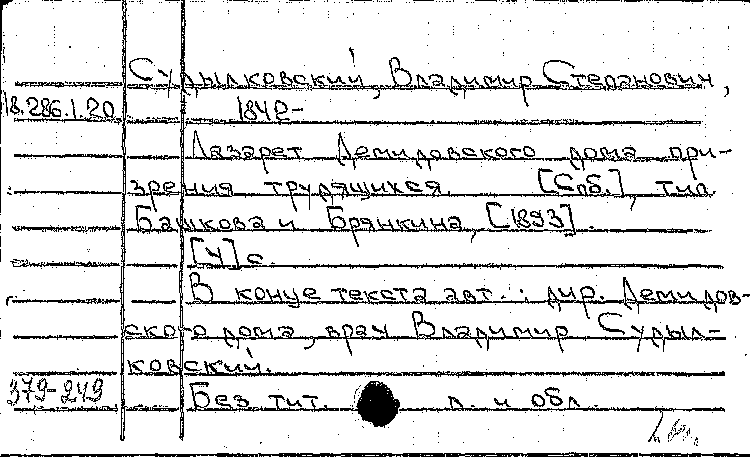 Судылковский, Владимир Степанович,
18.286.1.20 1842-
Лазарет Демидовского дома при-
зрения трудящихся. [Спб.], тип.
Башкова и Брянкина, [1893].
[4] с.
В конце текста авт.: дир. Демидов-
ского дома, врач Владимир Судыл-
ковский.
379-249 Без тит. л. и обл.